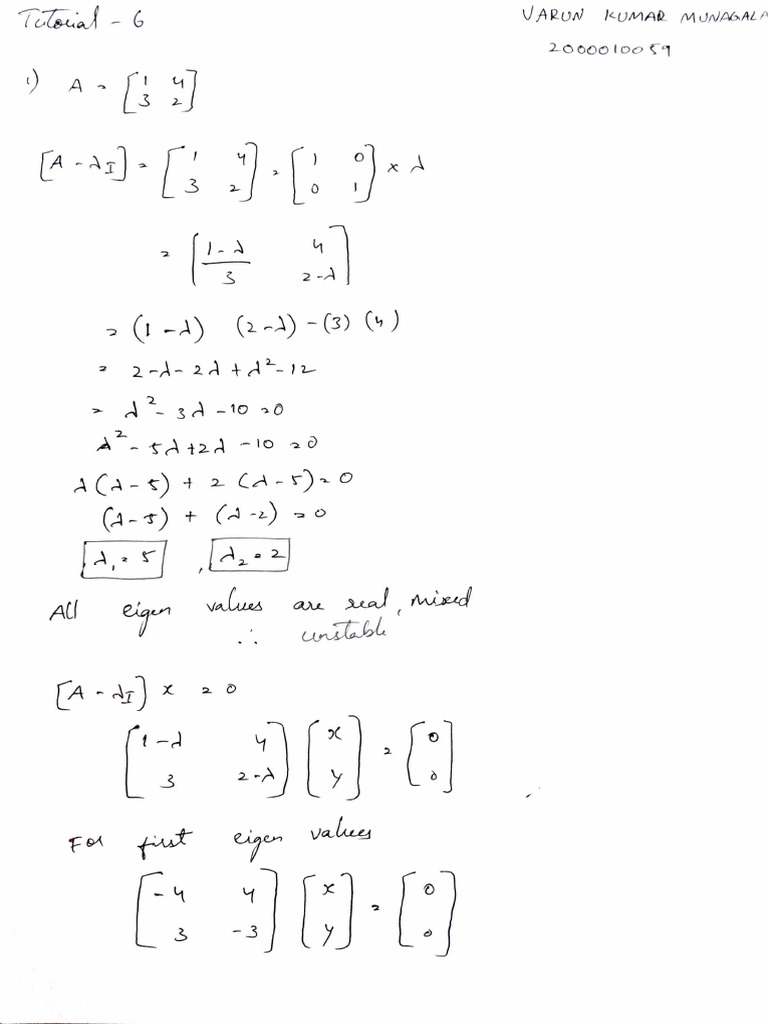 Tutorial - 6
VARUN KUMAR MUNAGALA
2000010059
1) A = [1 4
3 2]
[A - λI] = [1 4
3 2] - [1 0
0 1] × λ
= [1-λ 4
3 2-λ]
= (1-λ) (2-λ) - (3) (4)
= 2-λ-2λ+λ²-12
= λ²-3λ-10=0
λ²-5λ+2λ-10=0
λ(λ-5) + 2(λ-5)=0
(λ-5) + (λ-2) =0
λ₁=5 , λ₂=2
All eigen values are real, mixed
∴ unstable
[A - λI] x = 0
[1-λ 4
3 2-λ] [x
y] = [0
0]
For first eigen values
[-4 4
3 -3] [x
y] = [0
0]